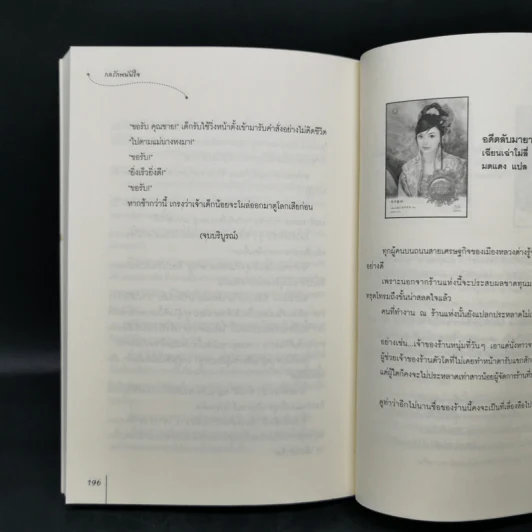 กลรักพนันใจ
"ขอรับ คุณชาย!" เด็กรับใช้วิ่งหน้าตั้งเข้ามารับคำสั่งอย่างไม่คิดชีวิต
"ไปตามแม่นางหงมา!"
"ขอรับ!"
"ยิ่งเร็วยิ่งดี!"
"ขอรับ!"
หากช้ากว่านี้ เกรงว่าเจ้าเด็กน้อยจะโผล่ออกมาดูโลกเสียก่อน
(จบบริบูรณ์)
196
อดีตลับมายา
เฉียนเฉ่าโม่ลี่
มดแดง แปล
ทุกผู้คนบนถนนสายเศรษฐกิจของเมืองหลวงต่างรู้
อย่างดี
เพราะนอกจากร้านแห่งนี้จะประสบผลขาดทุนม
ทรุดโทรมถึงขั้นน่าสลดใจแล้ว
คนที่ทำงาน ณ ร้านแห่งนั้นยังแปลกประหลาดไม่
อย่างเช่น...เจ้าของร้านหนุ่มที่วันๆ เอาแต่นั่งหาว
ผู้ช่วยเจ้าของร้านตัวโตที่ไม่เคยทำหน้าตารับแขกสัก
แต่ผู้ใดก็คงจะไม่ประหลาดเท่าสาวน้อยผู้จัดการร้านที่
ดูท่าว่าอีกไม่นานชื่อของร้านนี้คงจะเป็นที่เลื่องลือไป